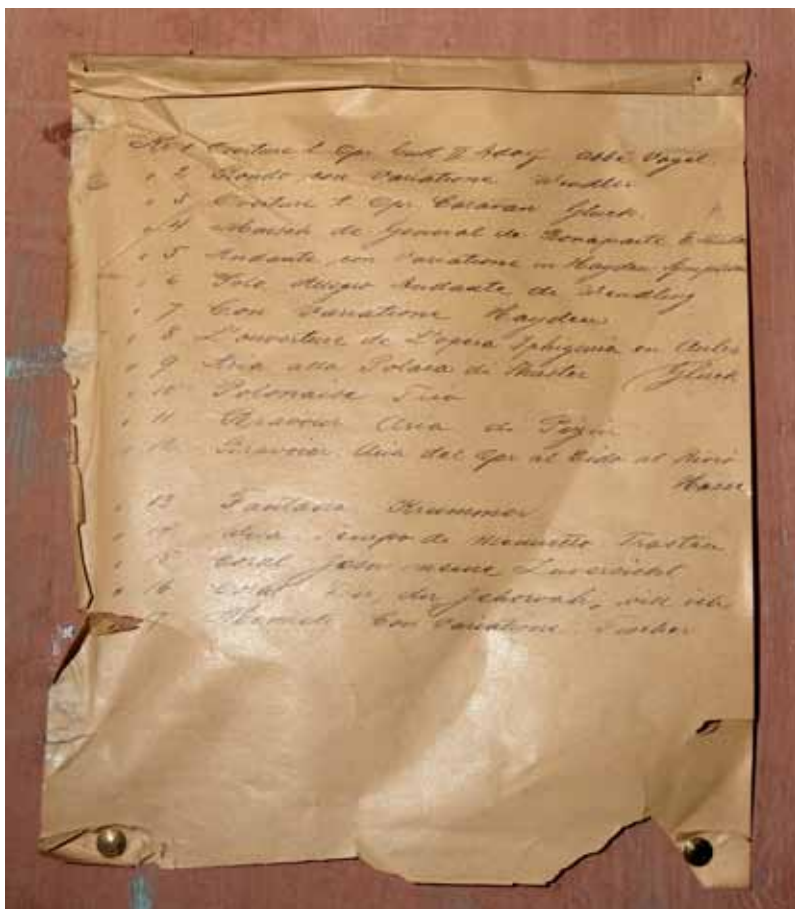 No 1 Ouverture t. Opr. Gust. II Adolf Abbé Vogel.
" 2 Rondo con Variatione Wendler
" 3 Overture t. Opr. Caravan Gluck.
" 4 Marsch de General de Bonaparte
" 5 Andante con Variatione in Hayden
" 6 Solo Allegro Andante, di Wendling
" 7 Con Variatione Hayden
" 8 L'ouverture de L'opera Iphigenia en Aulis
" 9 Aria alla Polaca di Master (Gluck
" 10 Polonaise Trio
" 11 Bravour Aria di
" 12 Bravour Aria del Opr. al
" 13 Fantasia Krummer
" 14 Tempo di Menuetto
" 15 Coral Jesu meine Zuversicht
" 16 Coral Dir, dir Jehovah, will ich
Con Variatione Fischer